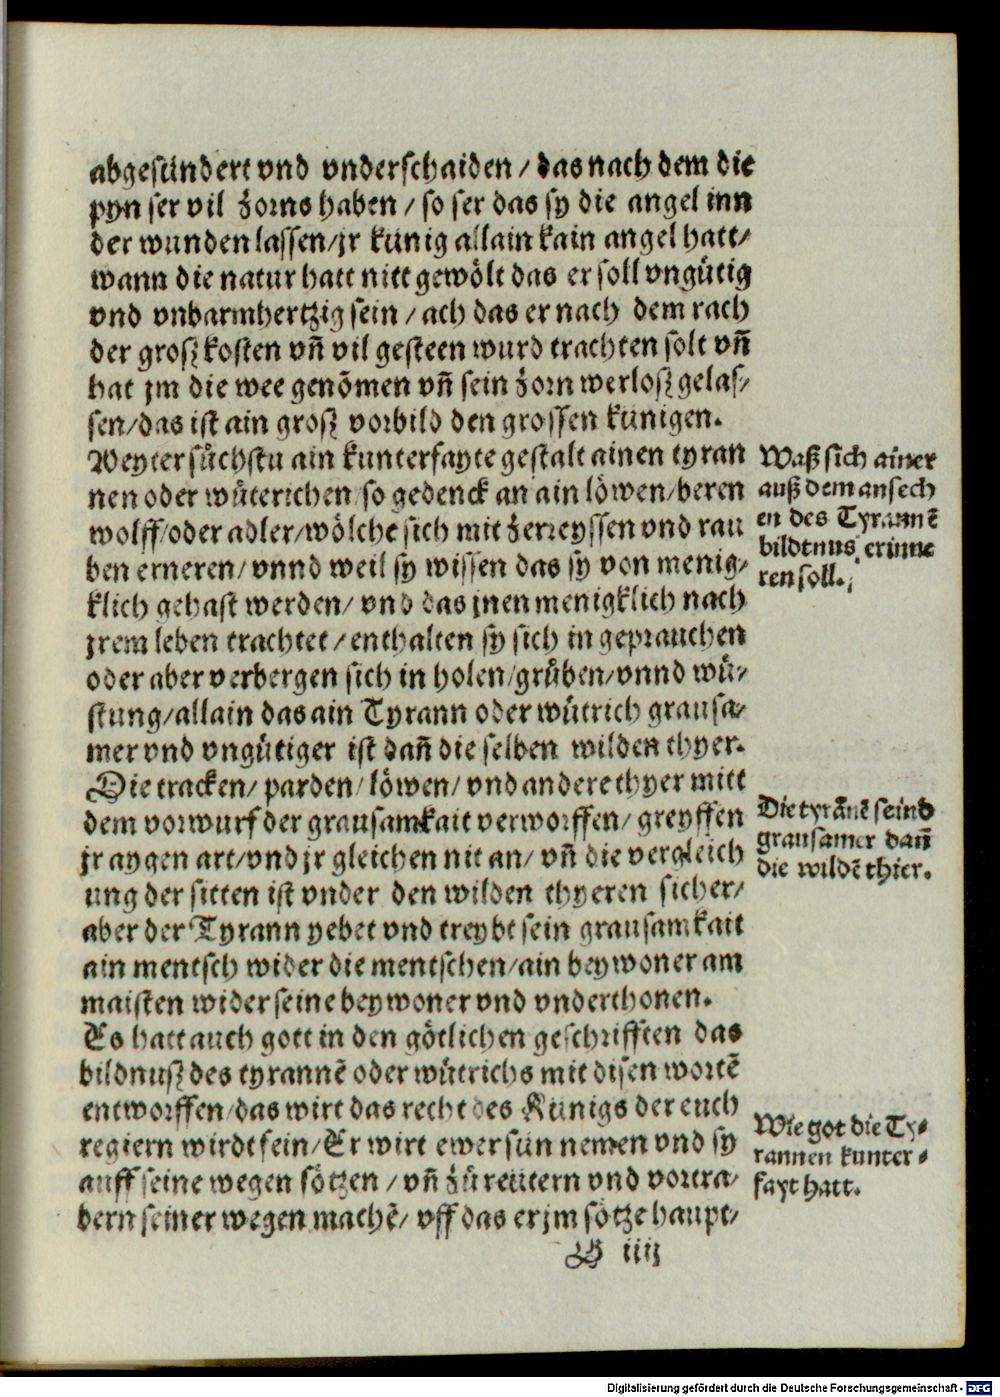 abgesündert vnd vnderschaiden / das nach dem die
pyn ser vil zorns haben / so ser das sy die angel inn
der wunden lassen/jr künig allain kain angel hatt/
wann die natur hatt nitt gewölt das er soll vngütig
vnd vnbarmhertzig sein / ach das er nach dem rach
der groß kosten vñ vil gesteen wurd trachten solt vñ
hat jm die wee genõmen vñ sein zorn werloß gelas/
sen/das ist ain groß vorbild den grossen künigen.
Weyter sůchstu ain kunterfayte gestalt ainen tyran
nen oder wůterichen so gedenck an ain löwen/beren
wolff/oder adler/wölche sich mit zerreyssen vnd rau
ben erneren/vnnd weil sy wissen das sy von menig/
klich gehast werden/ vnd das jnen menigklich nach
jrem leben trachtet/enthalten sy sich in geprauchen
oder aber verbergen sich in holen/grůben/vnnd wů/
stung/allain das ain Tyrann oder wůtrich grausa/
mer vnd vngütiger ist dañ die selben wilden thyer.
Die tracken/ parden/ löwen/ vnd andere thyer mitt
dem vorwurf der grausamkait verworffen/ greyffen
jr aygen art/vnd jr gleichen nit an/ vñ die vergleich
ung der sitten ist vnder den wilden thyeren sicher/
aber der Tyrann yebet vnd treybt sein grausamkait
ain mentsch wider die mentschen/ain beywoner am
maisten wider seine beywoner vnd vnderthonen.
Es hatt auch gott in den götlichen geschrifften das
bildnuß des tyrannẽ oder wütrichs mit disen wortẽ
entworffen/das wirt das recht des Künigs der euch
regiern wirdt sein/Er wirt ewer sün nemen vnd sy
auff seine wegen sötzen / vñ zů reütern vnd vortra/
bern seiner wegen machẽ/ vff das er jm sötze haupt/
B iiij
Waß sich ainer
auß dem ansech
en des Tyrannẽ
bildtnus erinne
ren soll.
Die tyrãnẽ seind
grausamer dañ
die wildẽ thier.
Wie got die Ty/
rannen kunter/
fayt hatt.
Digitalisierung gefördert durch die Deutsche Forschungsgemeinschaft - DFG